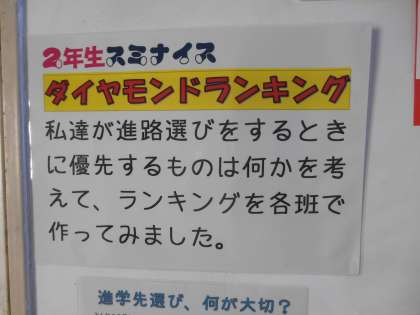 2年生スミナイス
ダイヤモンドランキング
私達が進路選びをするとき
に優先するものは何かを考
えて、ランキングを各班で
作ってみました。
進学先選び、何が大切？